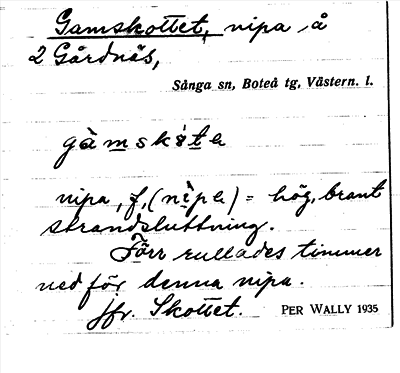 Gamskottet, nipa å
2 Gårdnäs,
Sånga sn, Boteå tg, Västern. l.
gàmskòtɐ
nipa, f, (nìpɐ) = hög, brant
strandsluttning.
Förr rullades timmer
ned för denna nipa.
Jfr. Skottet.
PER WALLY 1935